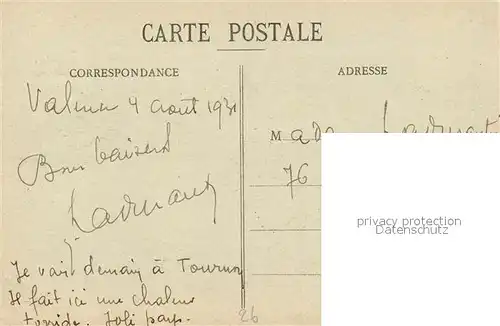 CARTE POSTALE
CORRESPONDANCE
ADRESSE
Valence 4 août 1931
Bons baisers
M
76
privacy protection
Datenschutz
Je vais demain à Tournon
Il fait ici une chaleur
torride. Joli pays.
26